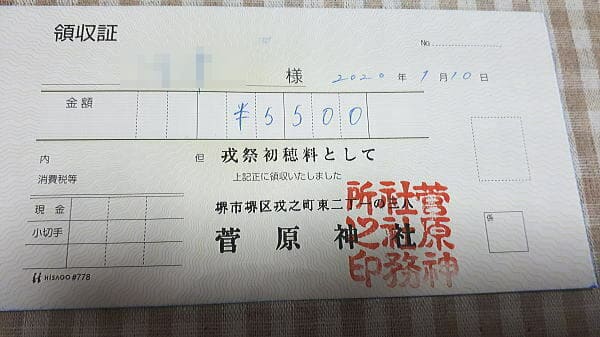 領収証
No.
様 2020年1月10日
金額 ¥5500
内 但 戎祭初穂料として
消費税等 上記正に領収いたしました
現金 堺市堺区戎之町東二丁一の三八
小切手 菅原神社
係
菅原神
社社務
所之印
HISAGO #778